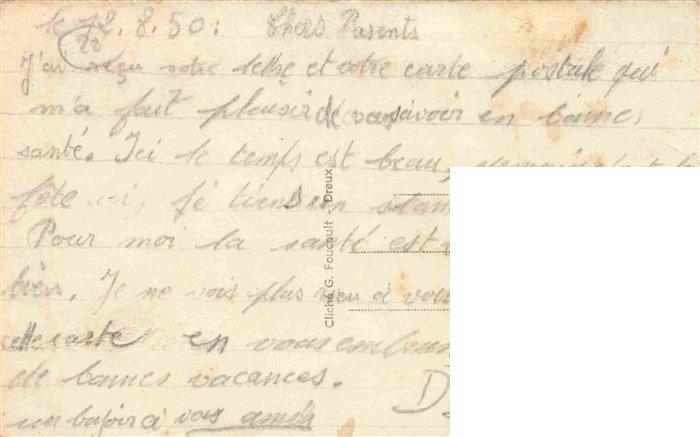 le 12.8.50: Chers Parents
28
J'ai reçu votre lettre et votre carte postale qui
m'a fait plaisir de vous savoir en bonnes
santé. Ici le temps est beau, demain
fête ici, je tiens un
Pour moi la santé est
bien. Je ne vois plus rien à vous
cette carte en vous
de bonnes vacances.
un à vous
Cliché G. Foucault - Dreux